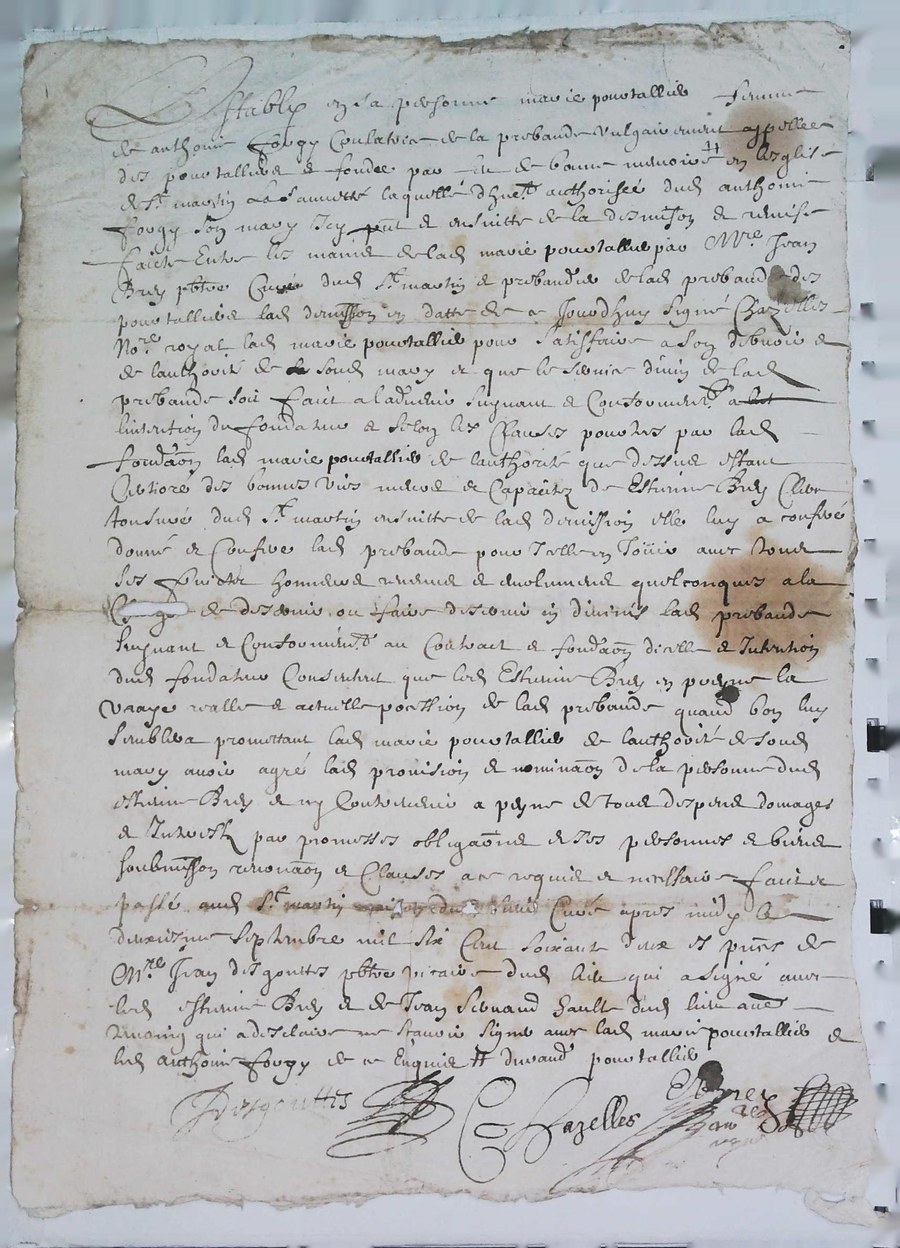 Establye en sa personne marie pourtallier femme
de anthoine forgy Collatrice de la prebande vulgairement appellee
des pourtalliers & fondee par feu de bonne memoire # en leglise
de St martin laquelle dhuet authorisée dud anthoine
forgy son mary Icy pnt & ensuitte de la desmission & remise
faicte Entre les mains de lad marie pourtallier par Mre Jean
Brey pbtre Curé dud St martin & prebandier de lad prebande des
pourtalliers lad demission en datte de ce Jourdhuy signé Chazelles
Nore royal lad marie pourtallier pour satisfaire a son debvoir &
de lauthorité de sond mary et que le service divin de lad
prebande soit faict a ladvenir suyvant & Conformemt a
lintention du fondateur & selon les Clauses portées par lad
fondaon lad marie pourtallier de lauthorité que dessus estant
Certioré des bonnes vies meurs et Capacitez de Estienne Brey Clerc
tonsuré dud St martin ensuitte de lad demission elle luy a conferé
donné et Confere lad prebande pour Icelle en Joüir avec tous
ses fruictz honneurs revenus & emolumens quelconques a la
Charge de desservir ou faire desservir in divinis lad prebande
suyvant et Conformémt au Contract de fondaon dicelle & Intention
dud fondateur Consentent que led Estienne Brey en prenne la
vraye realle & actuelle possession de lad prebande quand bon luy
semblera promettant lad marie pourtallier de lauthorité de sond
mary avoir agré lad provision & nominaon de la personne dud
estienne Brey & ny Contrevenir a peyne de tous despens domages
& Interestz par promesses obligaons de ses personnes & biens
soubmission renonaon & Clauses a ce requis et necessaires faict et
passé aud St martin maison dud sieur Curé apres midy le
deuxiesme septembre mil six Cent soixante deux es pnces de
Mre Jean desgouttes pbtre vicaire dud lieu qui a signé avec
led estienne Brey & de Jean dud lieu aue
tesmoing qui a desclaire ne scavoir signer avec lad marie pourtallier &
led anthoine forgy de ce Enquis # durand pourtallier
Desgouttes
Chazelles